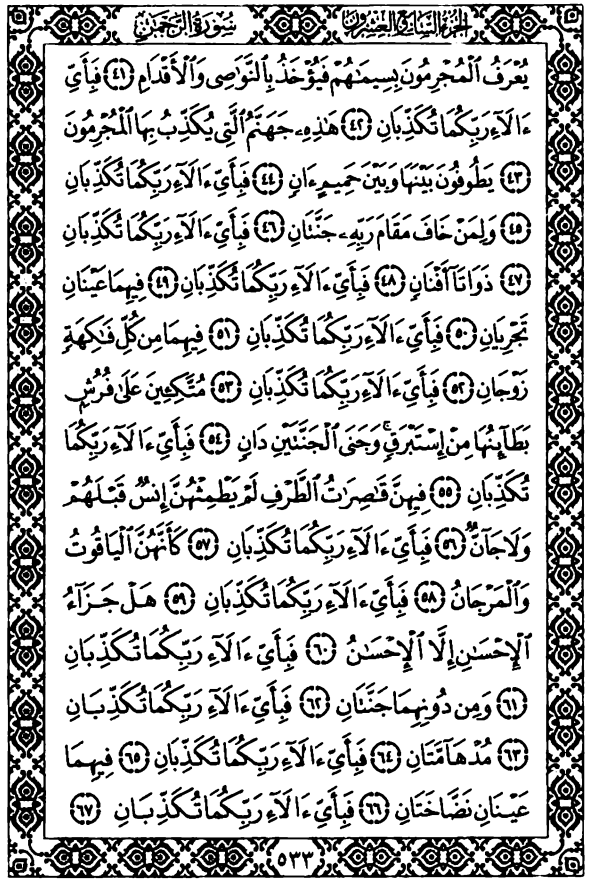 الجزء السابع والعشرون سورة الرحمن
يُعْرَفُ ٱلْمُجْرِمُونَ بِسِيمَٰهُمْ فَيُؤْخَذُ بِٱلنَّوَٰصِى وَٱلْأَقْدَامِ ٤١ فَبِأَىِّ
ءَالَآءِ رَبِّكُمَا تُكَذِّبَانِ ٤٢ هَٰذِهِۦ جَهَنَّمُ ٱلَّتِى يُكَذِّبُ بِهَا ٱلْمُجْرِمُونَ
٤٣ يَطُوفُونَ بَيْنَهَا وَبَيْنَ حَمِيمٍ ءَانٍ ٤٤ فَبِأَىِّ ءَالَآءِ رَبِّكُمَا تُكَذِّبَانِ
٤٥ وَلِمَنْ خَافَ مَقَامَ رَبِّهِۦ جَنَّتَانِ ٤٦ فَبِأَىِّ ءَالَآءِ رَبِّكُمَا تُكَذِّبَانِ
٤٧ ذَوَاتَآ أَفْنَانٍ ٤٨ فَبِأَىِّ ءَالَآءِ رَبِّكُمَا تُكَذِّبَانِ ٤٩ فِيهِمَا عَيْنَانِ
تَجْرِيَانِ ٥٠ فَبِأَىِّ ءَالَآءِ رَبِّكُمَا تُكَذِّبَانِ ٥١ فِيهِمَا مِن كُلِّ فَٰكِهَةٍ
زَوْجَانِ ٥٢ فَبِأَىِّ ءَالَآءِ رَبِّكُمَا تُكَذِّبَانِ ٥٣ مُتَّكِـِٔينَ عَلَىٰ فُرُشٍۭ
بَطَآئِنُهَا مِنْ إِسْتَبْرَقٍ ۚ وَجَنَى ٱلْجَنَّتَيْنِ دَانٍ ٥٤ فَبِأَىِّ ءَالَآءِ رَبِّكُمَا
تُكَذِّبَانِ ٥٥ فِيهِنَّ قَٰصِرَٰتُ ٱلطَّرْفِ لَمْ يَطْمِثْهُنَّ إِنسٌ قَبْلَهُمْ
وَلَا جَآنٌّ ٥٦ فَبِأَىِّ ءَالَآءِ رَبِّكُمَا تُكَذِّبَانِ ٥٧ كَأَنَّهُنَّ ٱلْيَاقُوتُ
وَٱلْمَرْجَانُ ٥٨ فَبِأَىِّ ءَالَآءِ رَبِّكُمَا تُكَذِّبَانِ ٥٩ هَلْ جَزَآءُ
ٱلْإِحْسَٰنِ إِلَّا ٱلْإِحْسَٰنُ ٦٠ فَبِأَىِّ ءَالَآءِ رَبِّكُمَا تُكَذِّبَانِ
٦١ وَمِن دُونِهِمَا جَنَّتَانِ ٦٢ فَبِأَىِّ ءَالَآءِ رَبِّكُمَا تُكَذِّبَانِ
٦٣ مُدْهَآمَّتَانِ ٦٤ فَبِأَىِّ ءَالَآءِ رَبِّكُمَا تُكَذِّبَانِ ٦٥ فِيهِمَا
عَيْنَانِ نَضَّاخَتَانِ ٦٦ فَبِأَىِّ ءَالَآءِ رَبِّكُمَا تُكَذِّبَانِ ٦٧
٥٣٣